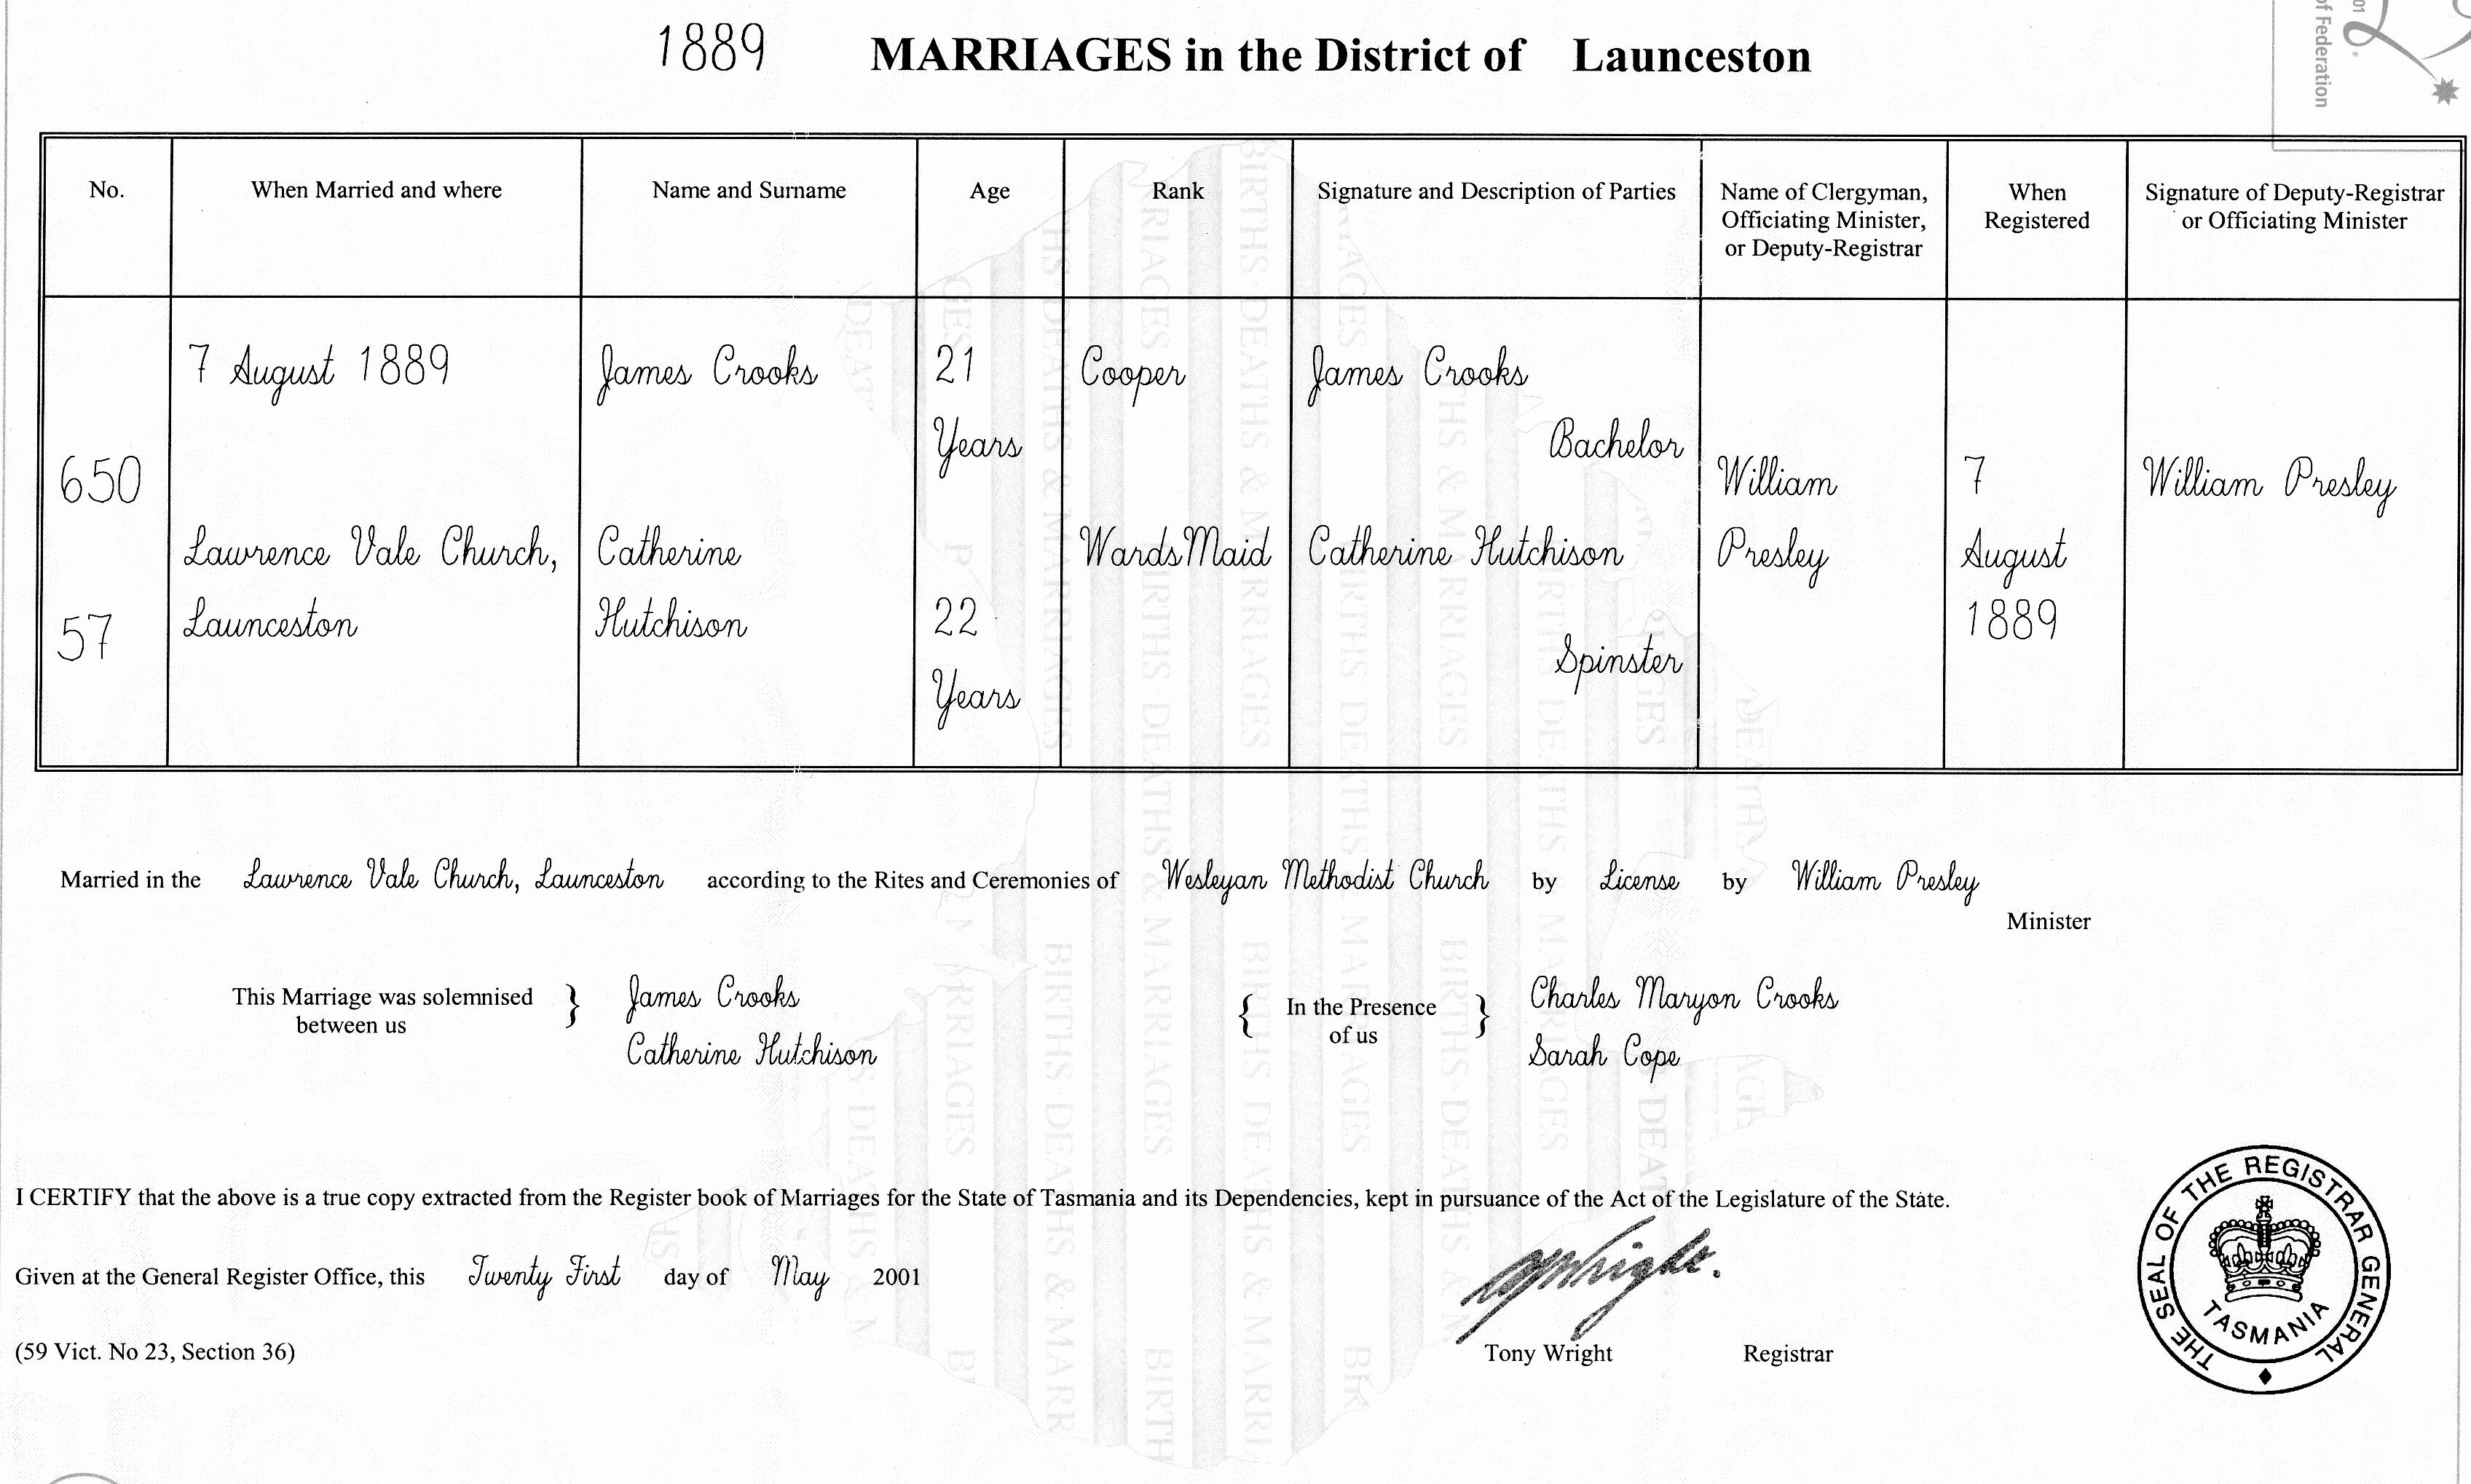 1889 MARRIAGES in the District of Launceston
01
of Federation
No. When Married and where Name and Surname Age Rank Signature and Description of Parties Name of Clergyman, Officiating Minister, or Deputy-Registrar When Registered Signature of Deputy-Registrar or Officiating Minister
7 August 1889 James Crooks 21 Cooper James Crooks
Years Bachelor
650 William 7 William Presley
Lawrence Vale Church, Catherine WardsMaid Catherine Hutchison Presley August
57 Launceston Hutchison 22 1889
Spinster
Years
Married in the Lawrence Vale Church, Launceston according to the Rites and Ceremonies of Wesleyan Methodist Church by License by William Presley
Minister
This Marriage was solemnised between us } James Crooks { In the Presence of us } Charles Maryon Crooks
Catherine Hutchison Sarah Cope
I CERTIFY that the above is a true copy extracted from the Register book of Marriages for the State of Tasmania and its Dependencies, kept in pursuance of the Act of the Legislature of the State.
Given at the General Register Office, this Twenty First day of May 2001
(59 Vict. No 23, Section 36) Tony Wright Registrar
THE SEAL OF THE REGISTRAR GENERAL
TASMANIA